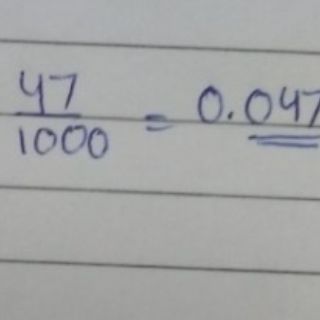 47/1000 = 0.047